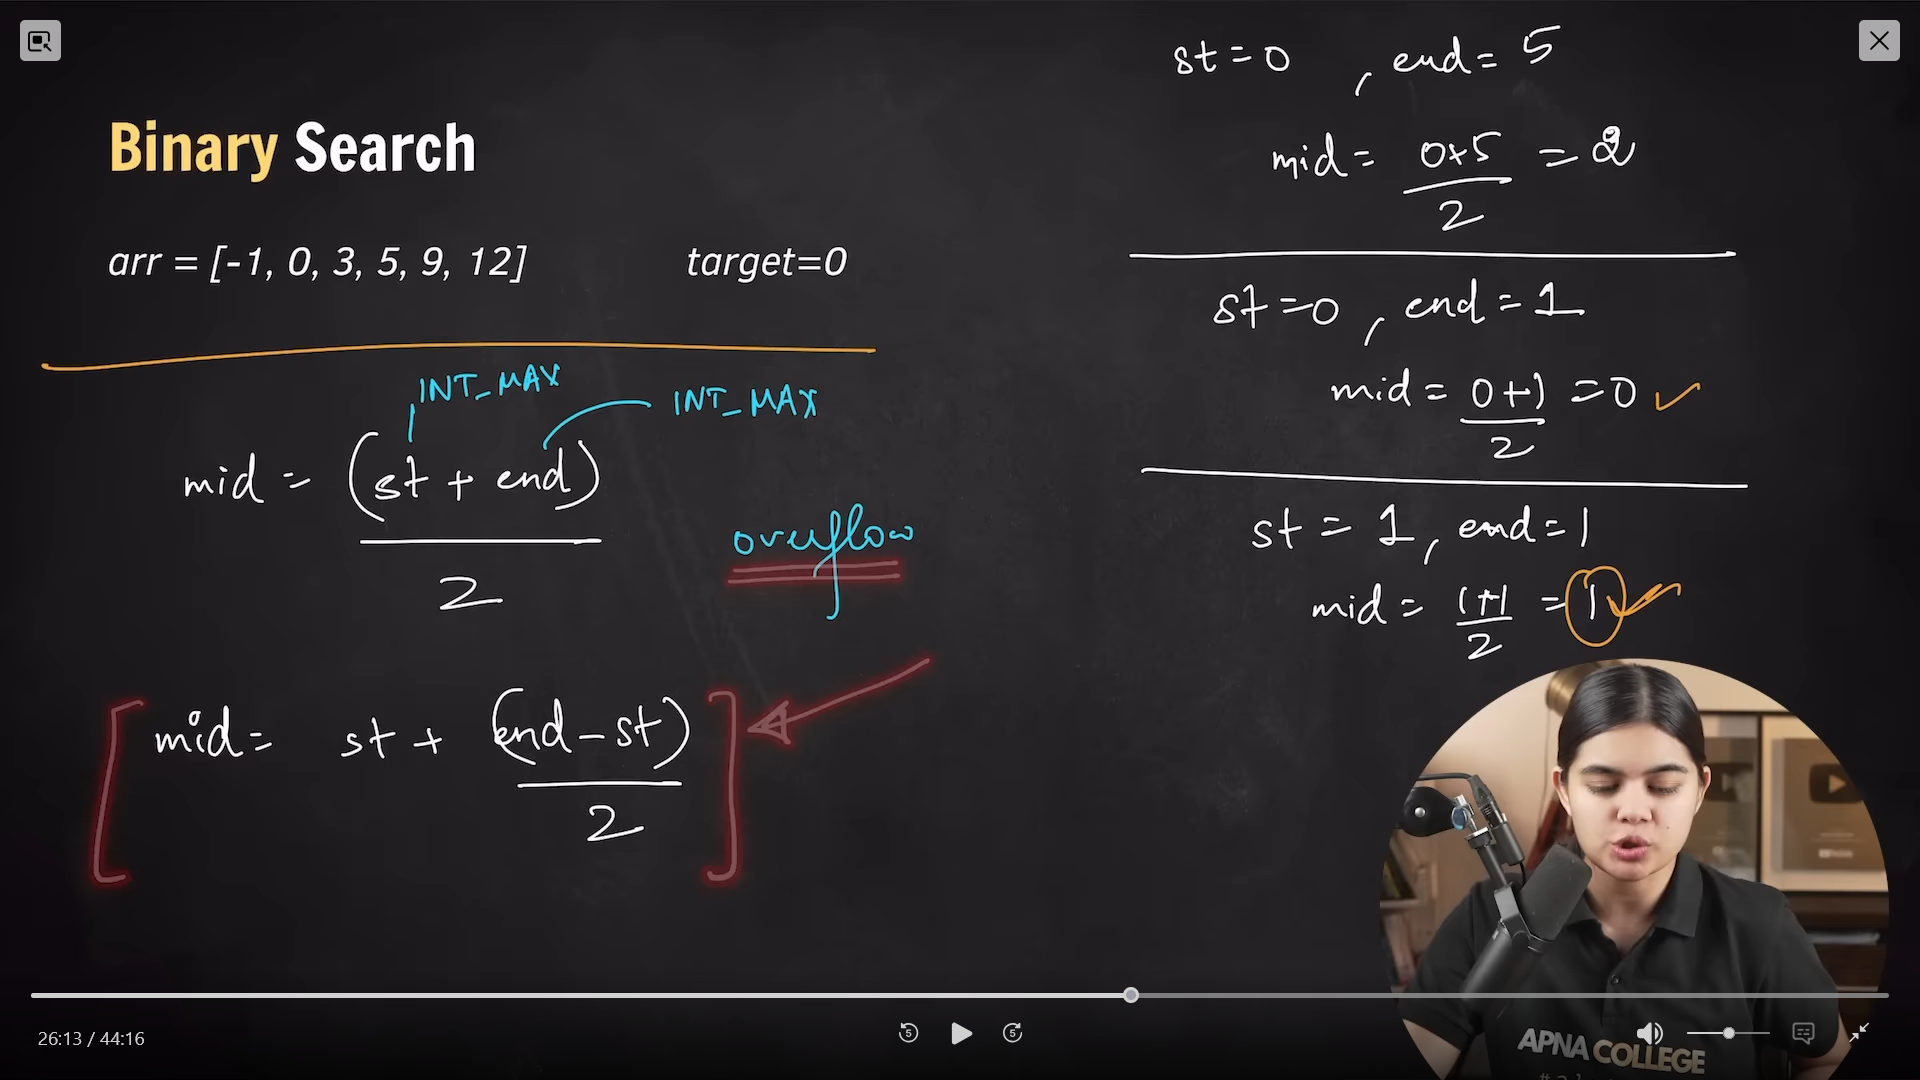 Binary Search
arr = [-1, 0, 3, 5, 9, 12] target=0
INT_MAX INT_MAX
mid = (st + end)
2
overflow
mid = st + (end - st)
2
st = 0 , end = 5
mid = 0+5 = 2
2
st = 0 , end = 1
mid = 0+1 = 0 ✓
2
st = 1 , end = 1
mid = 1+1 = 1 ✓
2
APNA COLLEGE
26:13 / 44:16
5 5